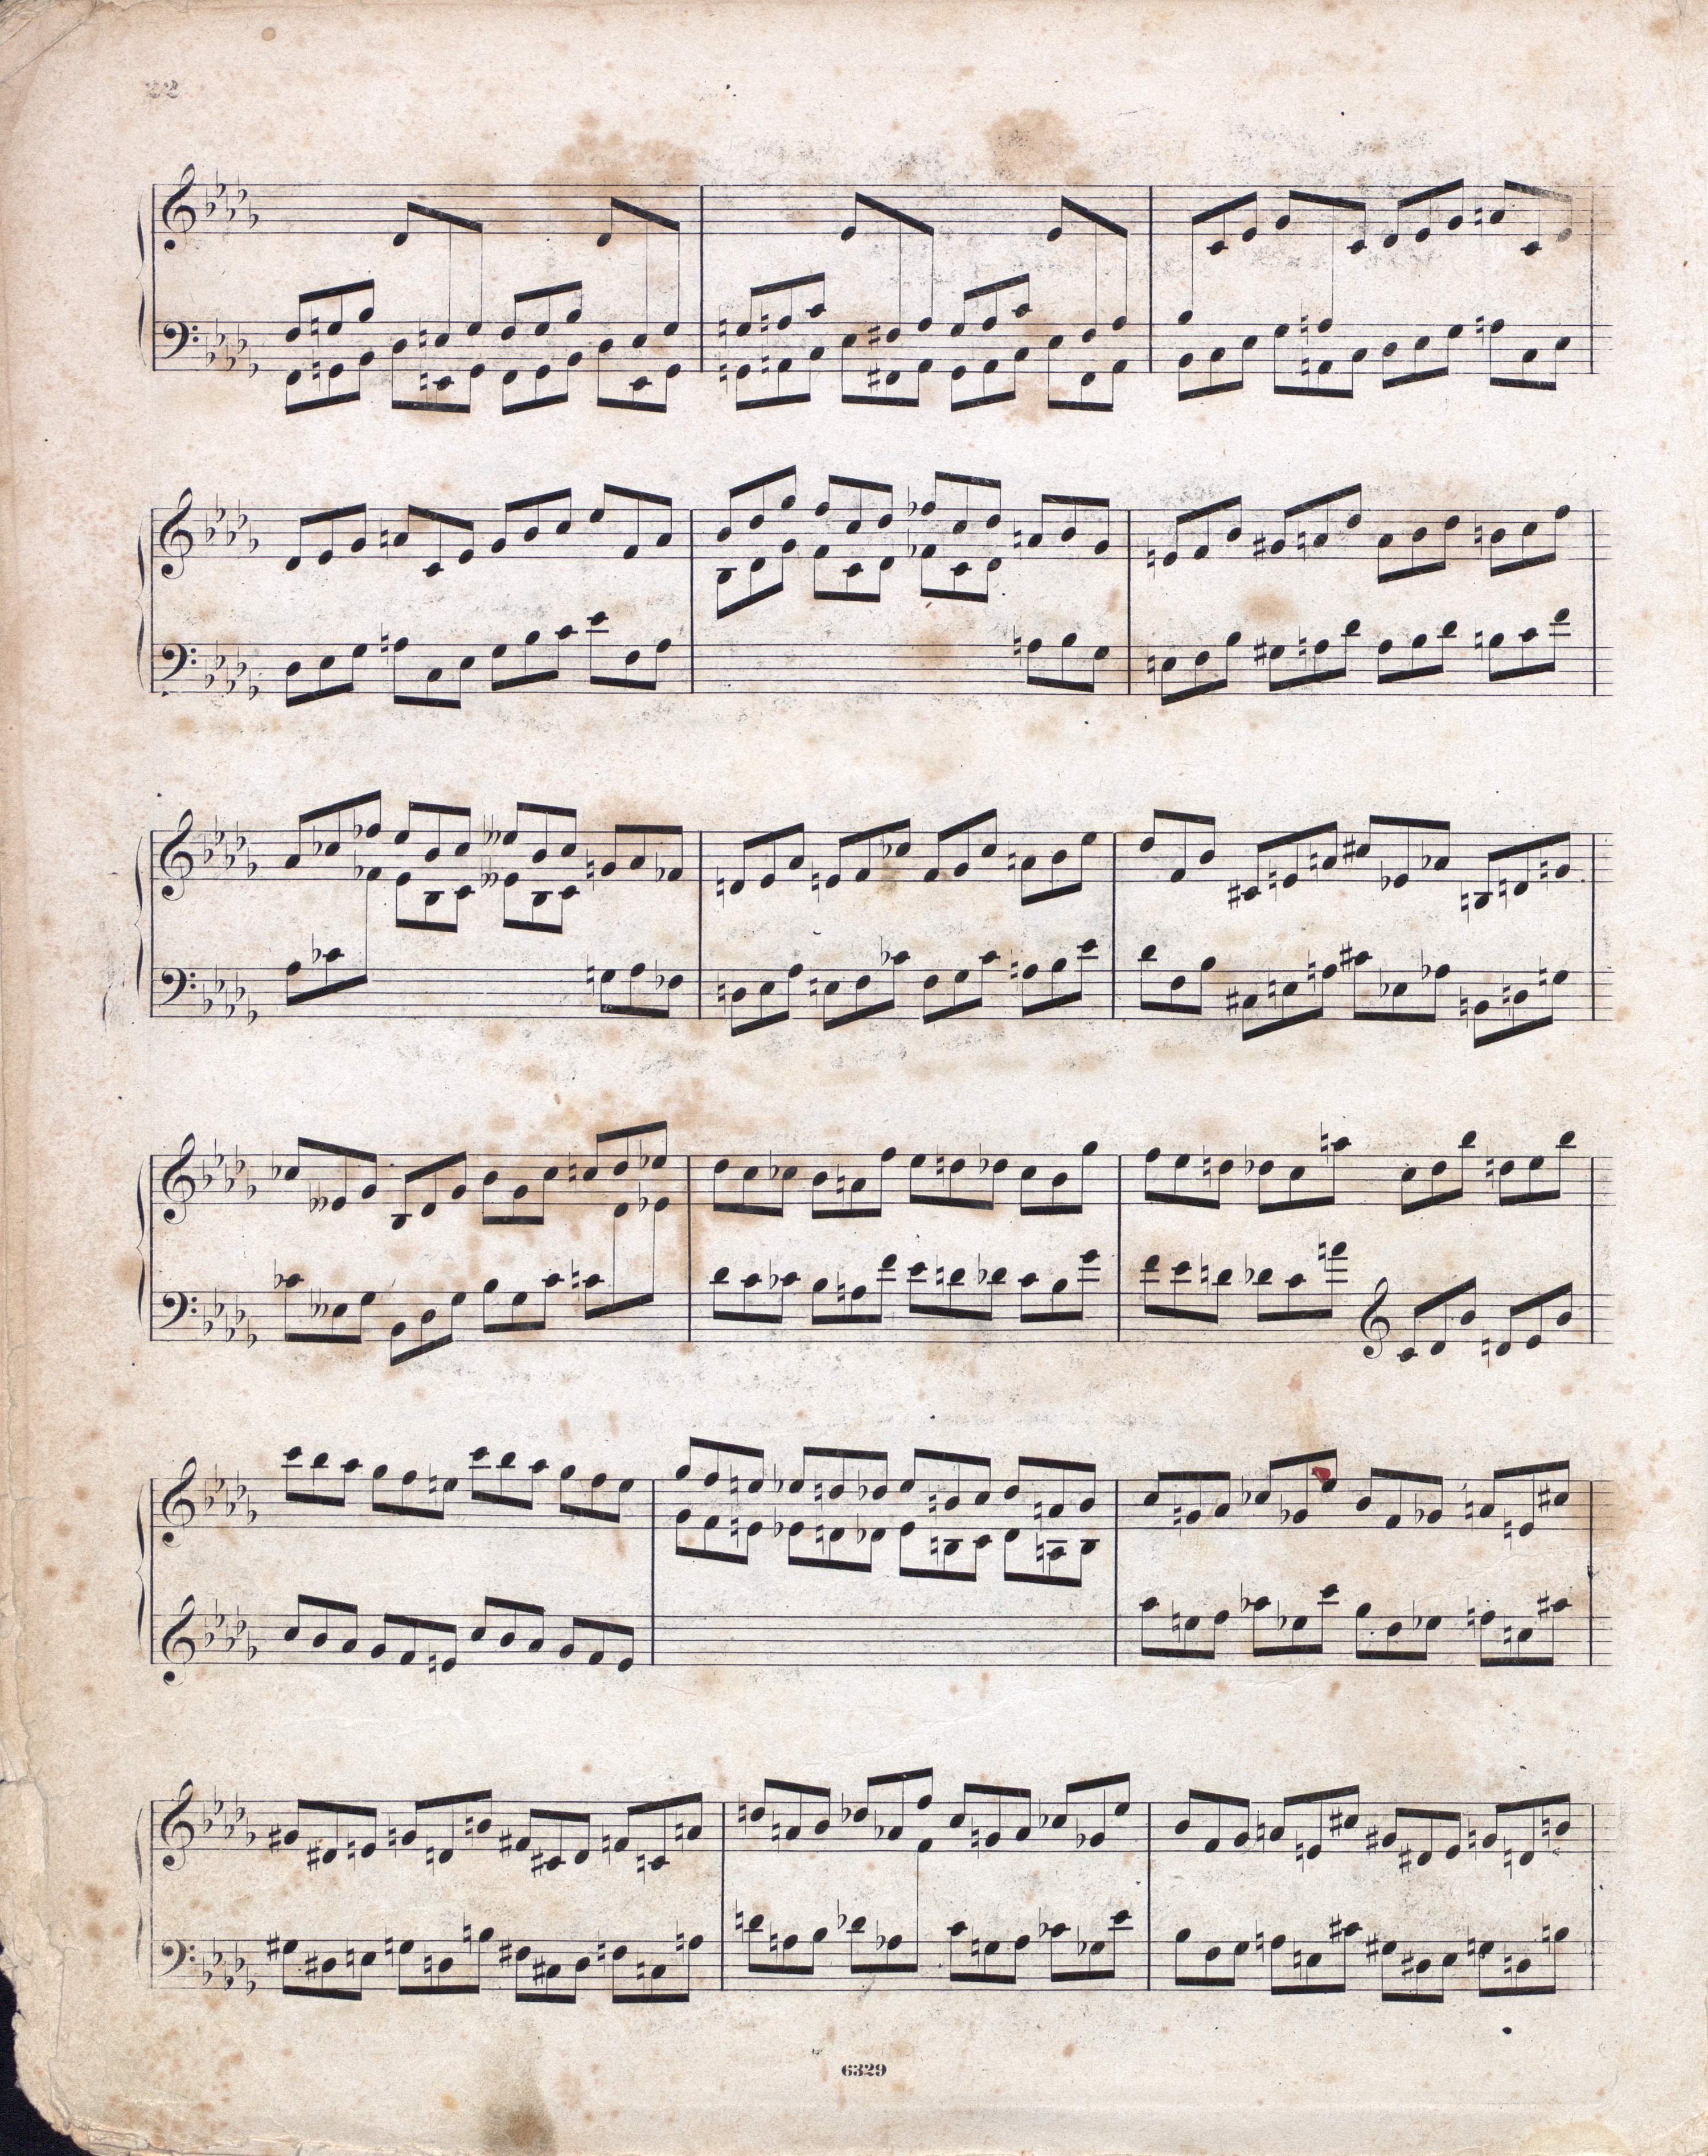 22
6329